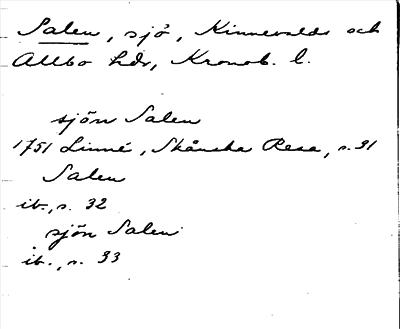 Salen, sjö, Kinnevalds och
Allbo hdr, Kronob. l.
sjön Salen
1751 Linné, Skånska Resa, s. 31
Salen
ib., s. 32
sjön Salen
ib., s. 33